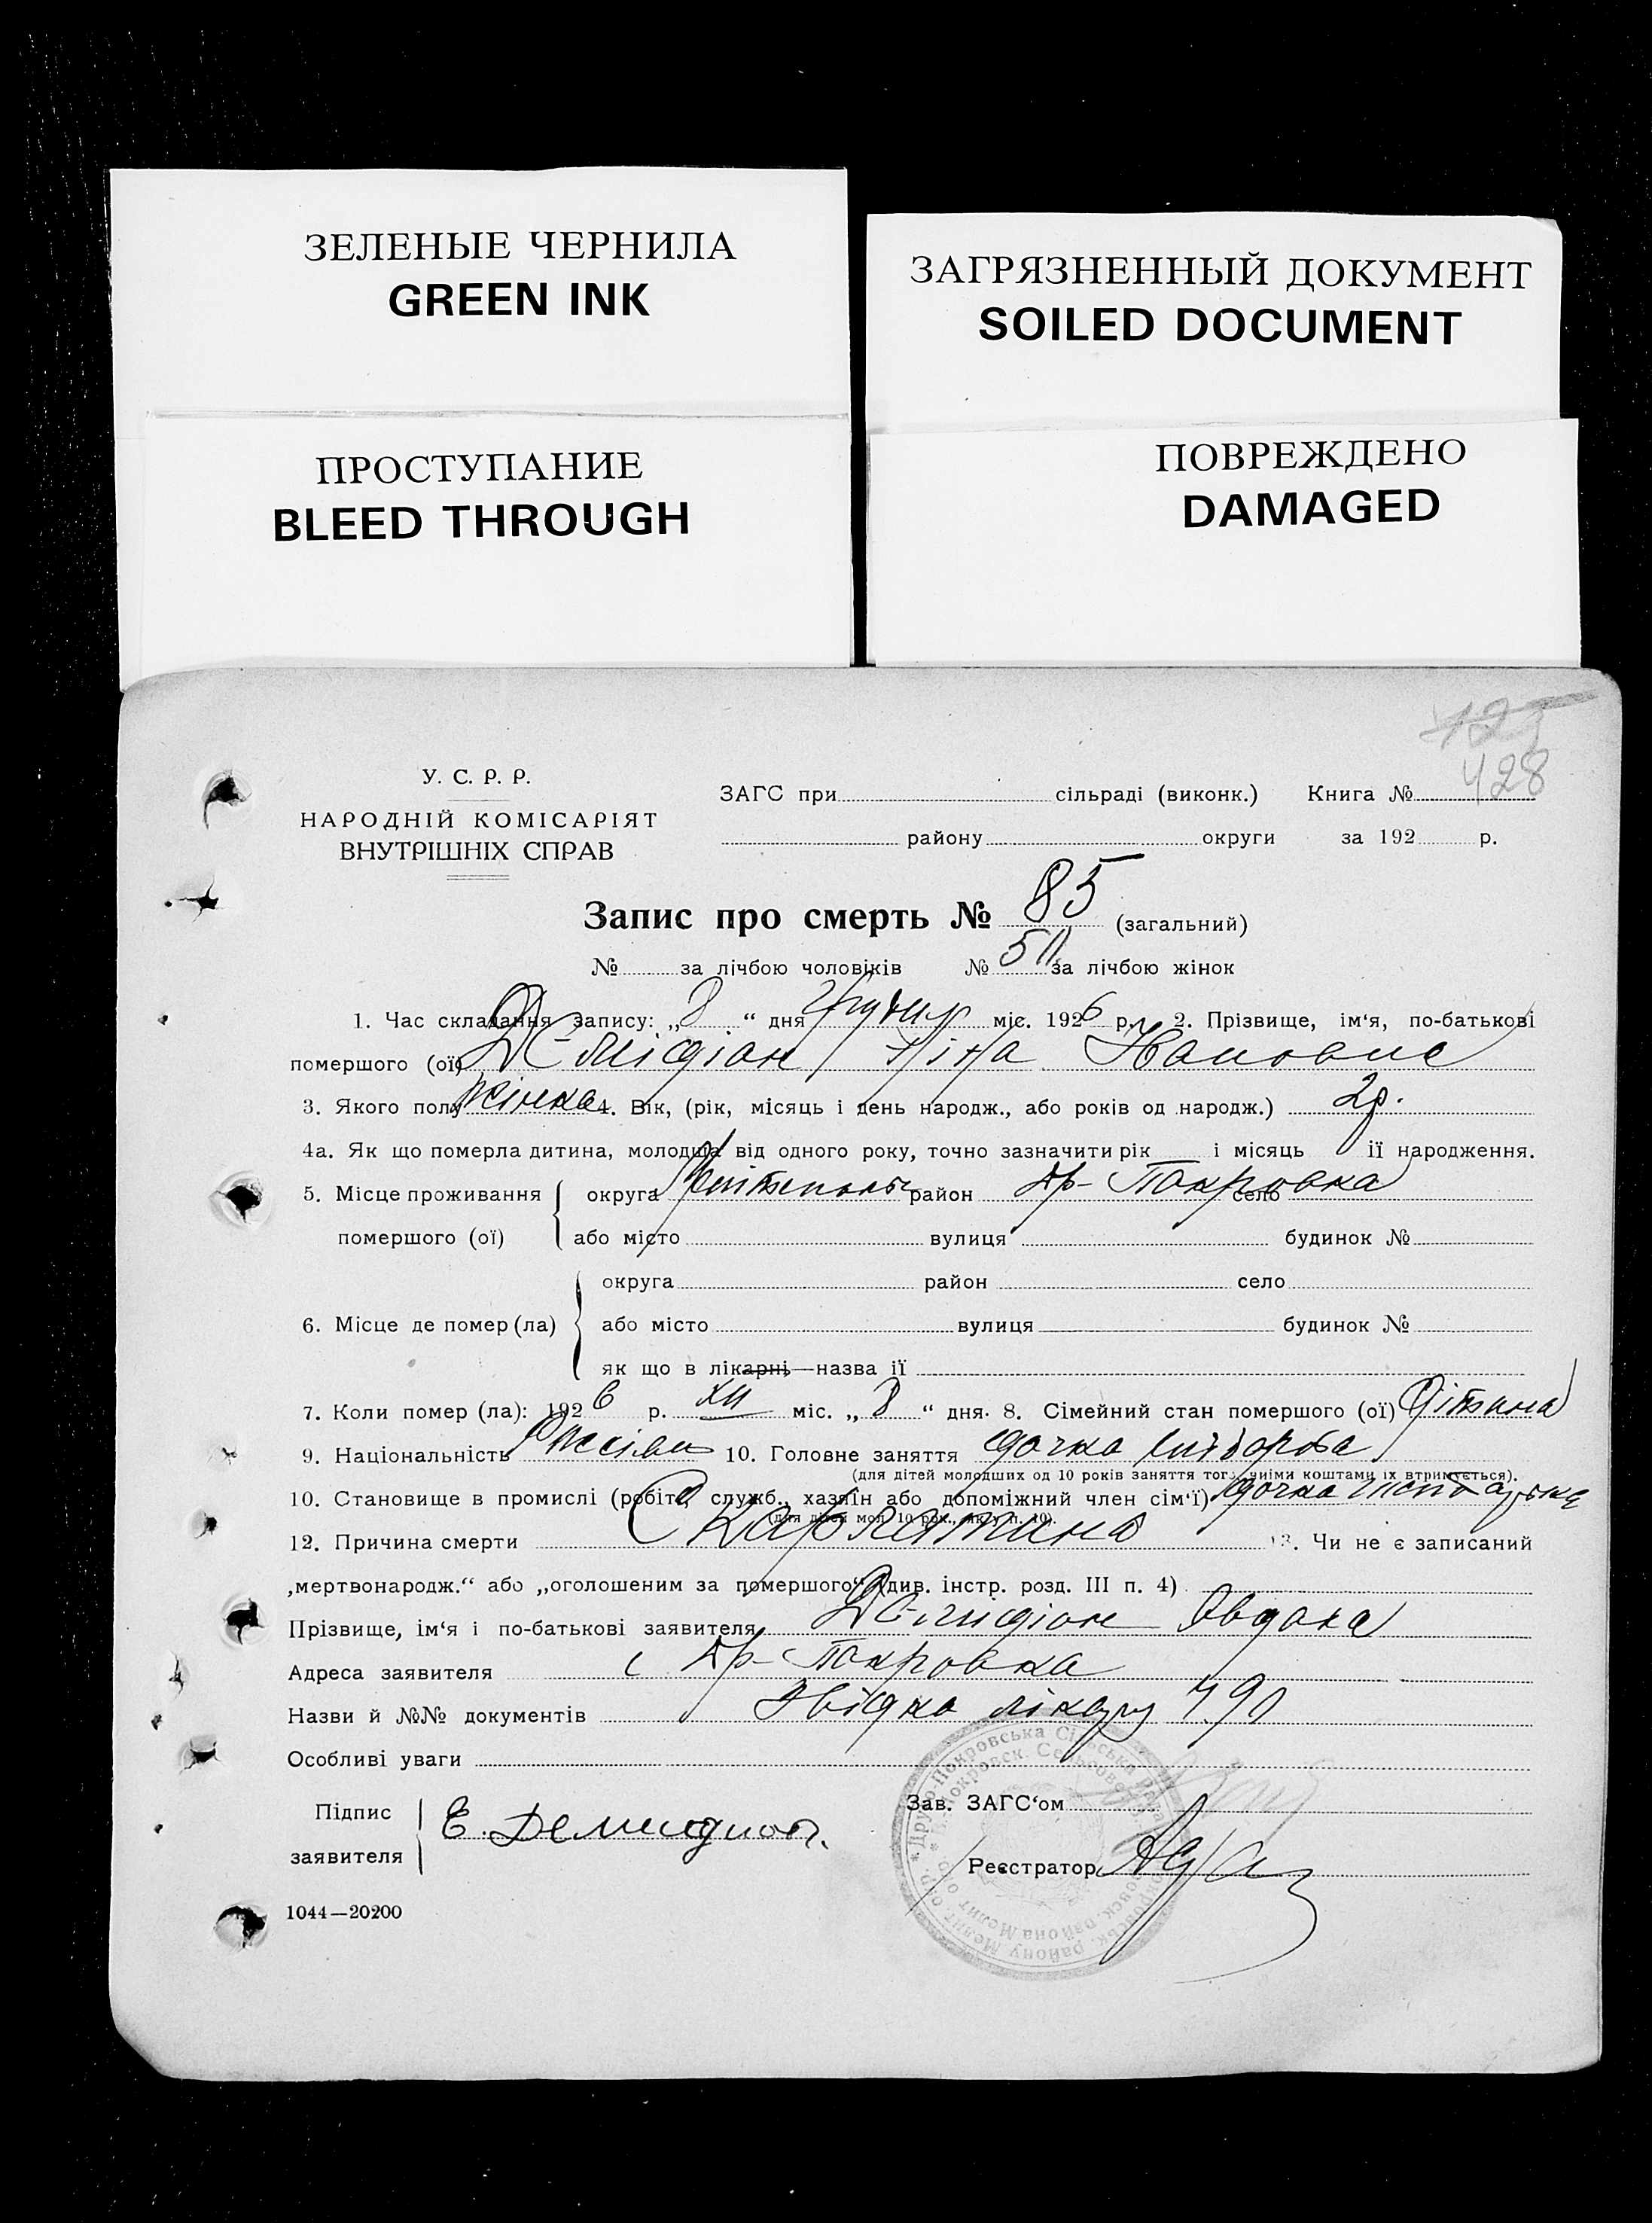 ЗЕЛЕНЫЕ ЧЕРНИЛА
GREEN INK
ЗАГРЯЗНЕННЫЙ ДОКУМЕНТ
SOILED DOCUMENT
ПРОСТУПАНИЕ
BLEED THROUGH
ПОВРЕЖДЕНО
DAMAGED
425
428
У. С. Р. Р.
НАРОДНІЙ КОМІСАРІЯТ
ВНУТРІШНІХ СПРАВ
ЗАГС при сільраді (виконк.) Книга №
району округи за 192 р.
Запис про смерть № 85 (загальний)
№ за лічбою чоловіків № 50 за лічбою жінок
1. Час складання запису: „8“ дня Грудня міс. 1926 р. 2. Прізвище, ім‘я, по-батькові
помершого (ої) Демидіон Ніна Івановна
3. Якого пола Жінка 4. Вік, (рік, місяць і день народж., або років од народж.) 2р.
4а. Як що померла дитина, молодша від одного року, точно зазначити рік і місяць її народження.
5. Місце проживання округа район Др-Покровка село
помершого (ої) або місто вулиця будинок №
округа район село
6. Місце де помер (ла) або місто вулиця будинок №
як що в лікарні—назва її
7. Коли помер (ла): 1926 р. XII міс. „8“ дня. 8. Сімейний стан помершого (ої) Дітина
9. Національність 10. Головне заняття дочка хлібороба
(для дітей молодших од 10 років заняття того, чиїми коштами їх втримується).
10. Становище в промислі (робітн., служб., хазяїн або допоміжний член сім‘ї) дочка
(для дітей мол. 10 рок., як у п. 10).
12. Причина смерти Скарлатина 13. Чи не є записаний
„мертвонародж.“ або „оголошеним за помершого“ (див. інстр. розд. III п. 4)
Прізвище, ім‘я і по-батькові заявителя Демидіон Явдоха
Адреса заявителя с Др-Покровка
Назви й №№ документів Звідка лікару
Особливі уваги
Підпис заявителя Е. Демидион.
Зав. ЗАГС‘ом
Реєстратор
1044—20200